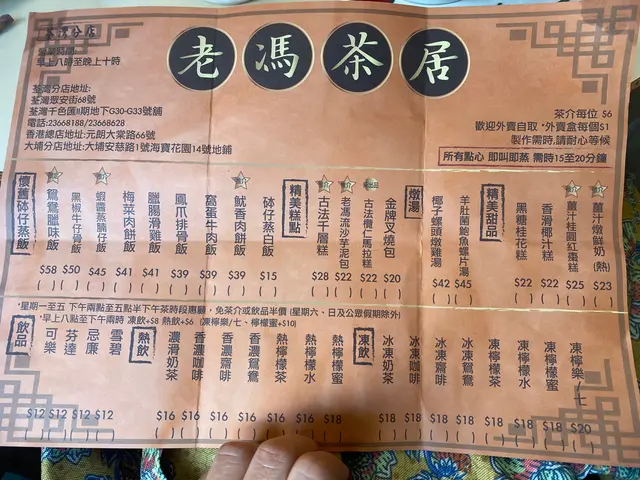 荃灣分店
老馮茶居
營業時間:
早上八時至晚上十時
荃灣分店地址:
荃灣眾安街68號
荃灣千色匯II期地下G30-G33號舖
電話:23668188/23668628
香港總店地址:元朗大棠路66號
大埔分店地址:大埔安慈路1號海寶花園14號地舖
茶介每位 $6
歡迎外賣自取 *外賣盒每個$1
製作需時,請耐心等候
所有點心 即叫即蒸 需時15至20分鐘
懷舊砵仔蒸飯
鴛鴦臘味飯 $58 ( )
黑椒牛仔骨飯 $50 ( )
蝦醬蒸腩仔飯 $45 ( )
梅菜肉餅飯 $41 ( )
臘腸滑雞飯 $41 ( )
鳳爪排骨飯 $39 ( )
窩蛋牛肉飯 $39 ( )
魷香肉餅飯 $39 ( )
砵仔蒸白飯 $15 ( )
精美糕點
古法千層糕 $28 ( )
老馮流沙芋泥包 $22 ( )
古法欖仁馬拉糕 $22 ( )
金牌叉燒包 $20 ( )
燉湯
椰子螺頭燉雞湯 $42 ( )
羊肚菌鮑魚螺片湯 $45 ( )
精美甜品
黑糖桂花糕 $22 ( )
香滑椰汁糕 $22 ( )
薑汁桂圓紅棗糕 $25 ( )
薑汁燉鮮奶(熱) $23 ( )
*星期一至五 下午兩點至五點半下午茶時段惠顧, 免茶介或飲品半價 (星期六、日及公眾假期除外)
*早上八點至下午兩時 凍飲+$8 熱飲+$6 (凍檸樂/七、檸檬蜜+$10)
飲品
可樂 $12 ( )
芬達 $12 ( )
忌廉 $12 ( )
雪碧 $12 ( )
熱飲
濃滑奶茶 $16 ( )
香濃咖啡 $16 ( )
香濃齋啡 $16 ( )
香濃鴛鴦 $16 ( )
熱檸檬茶 $16 ( )
熱檸檬水 $16 ( )
熱檸檬蜜 $18 ( )
凍飲
冰凍奶茶 $18 ( )
冰凍咖啡 $18 ( )
冰凍齋啡 $18 ( )
冰凍鴛鴦 $18 ( )
凍檸檬茶 $18 ( )
凍檸檬水 $18 ( )
凍檸檬蜜 $18 ( )
凍檸樂/七 $20 ( )